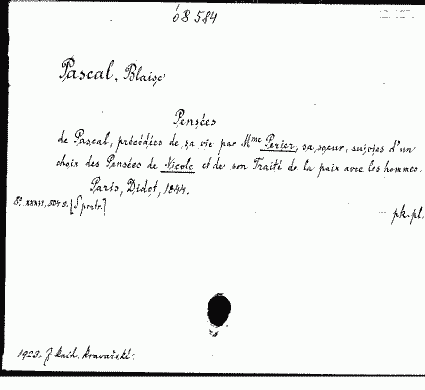 ó 8 584
Pascal, Blaise
Pensées
de Pascal, précédées de sa vie par Mme Perier, sa soeur, suivies d'un
choix des Pensées de Nicole et de son Traité de la paix avec les hommes.
Paris, Didot, 1844.
8°. XXXII, 504 s. [1 portr.]
pk. pl.
1922. J